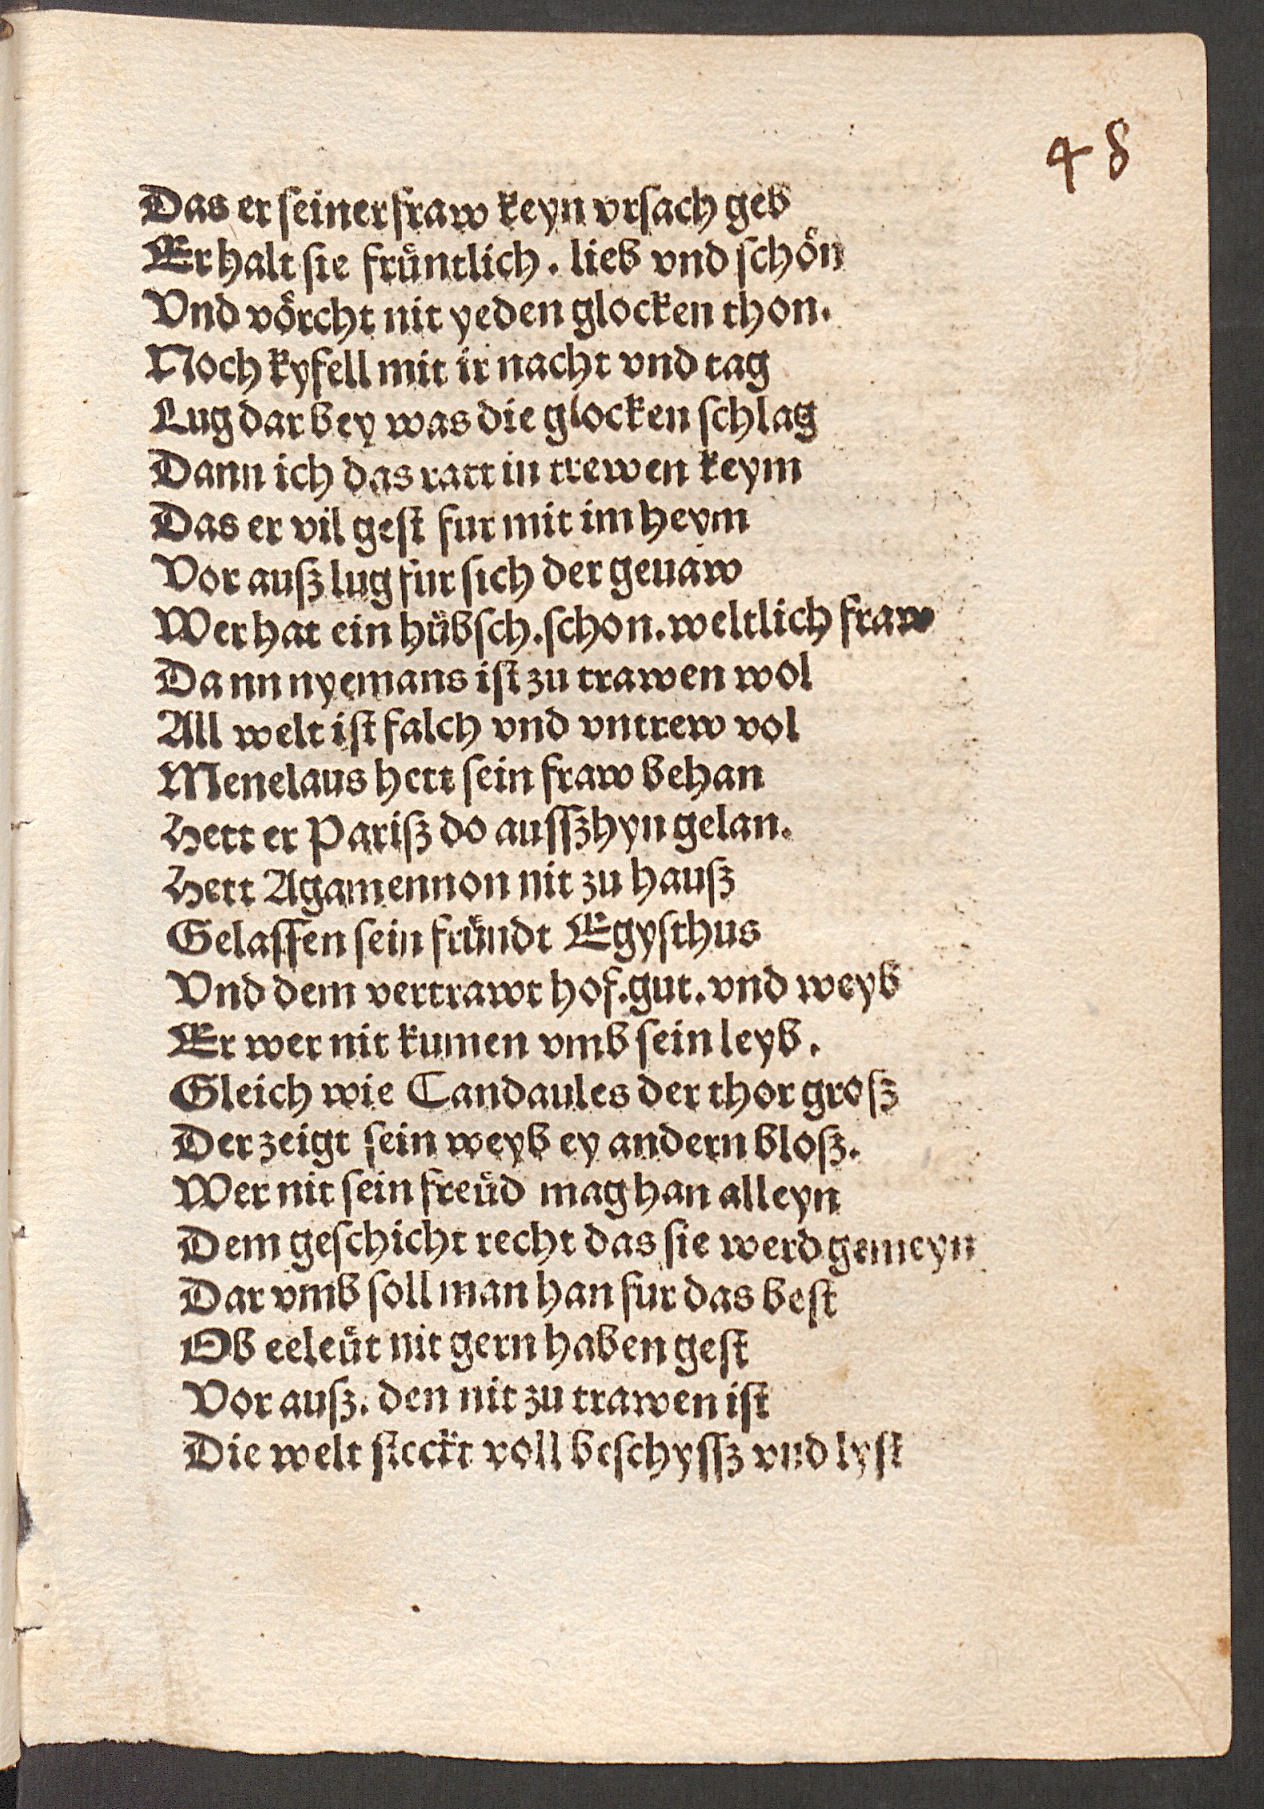 48
Das er seiner fraw keyn vrsach geb
Er halt sie fruͤntlich. lieb vnd schoͤn
Vnd voͤrcht nit yeden glocken thon.
Noch kyfell mit ir nacht vnd tag
Lug dar bey was die glocken schlag
Dann ich das ratt in trewen keym
Das er vil gest fur mit im heym
Vor ausz lug fur sich der genaw
Wer hat ein huͤbsch. schon. weltlich fraw
Dann nyemans ist zu trawen wol
All welt ist falch vnd vntrew vol
Menelaus hett sein fraw behan
Hett er Parisz do aussz hyn gelan.
Hett Agamennon nit zu hausz
Gelassen sein fruͤndt Egysthus
Vnd dem vertrawt hof. gut. vnd weyb
Er wer nit kumen vmb sein leyb.
Gleich wie Candaules der thor grosz
Der zeigt sein weyb ey andern blosz.
Wer nit sein freuͤd mag han alleyn
Dem geschicht recht das sie werd gemeyn
Dar vmb soll man han fur das best
Ob eeleuͤt nit gern haben gest
Vor ausz. den nit zu trawen ist
Die welt steckt voll beschyssz vnd lyst